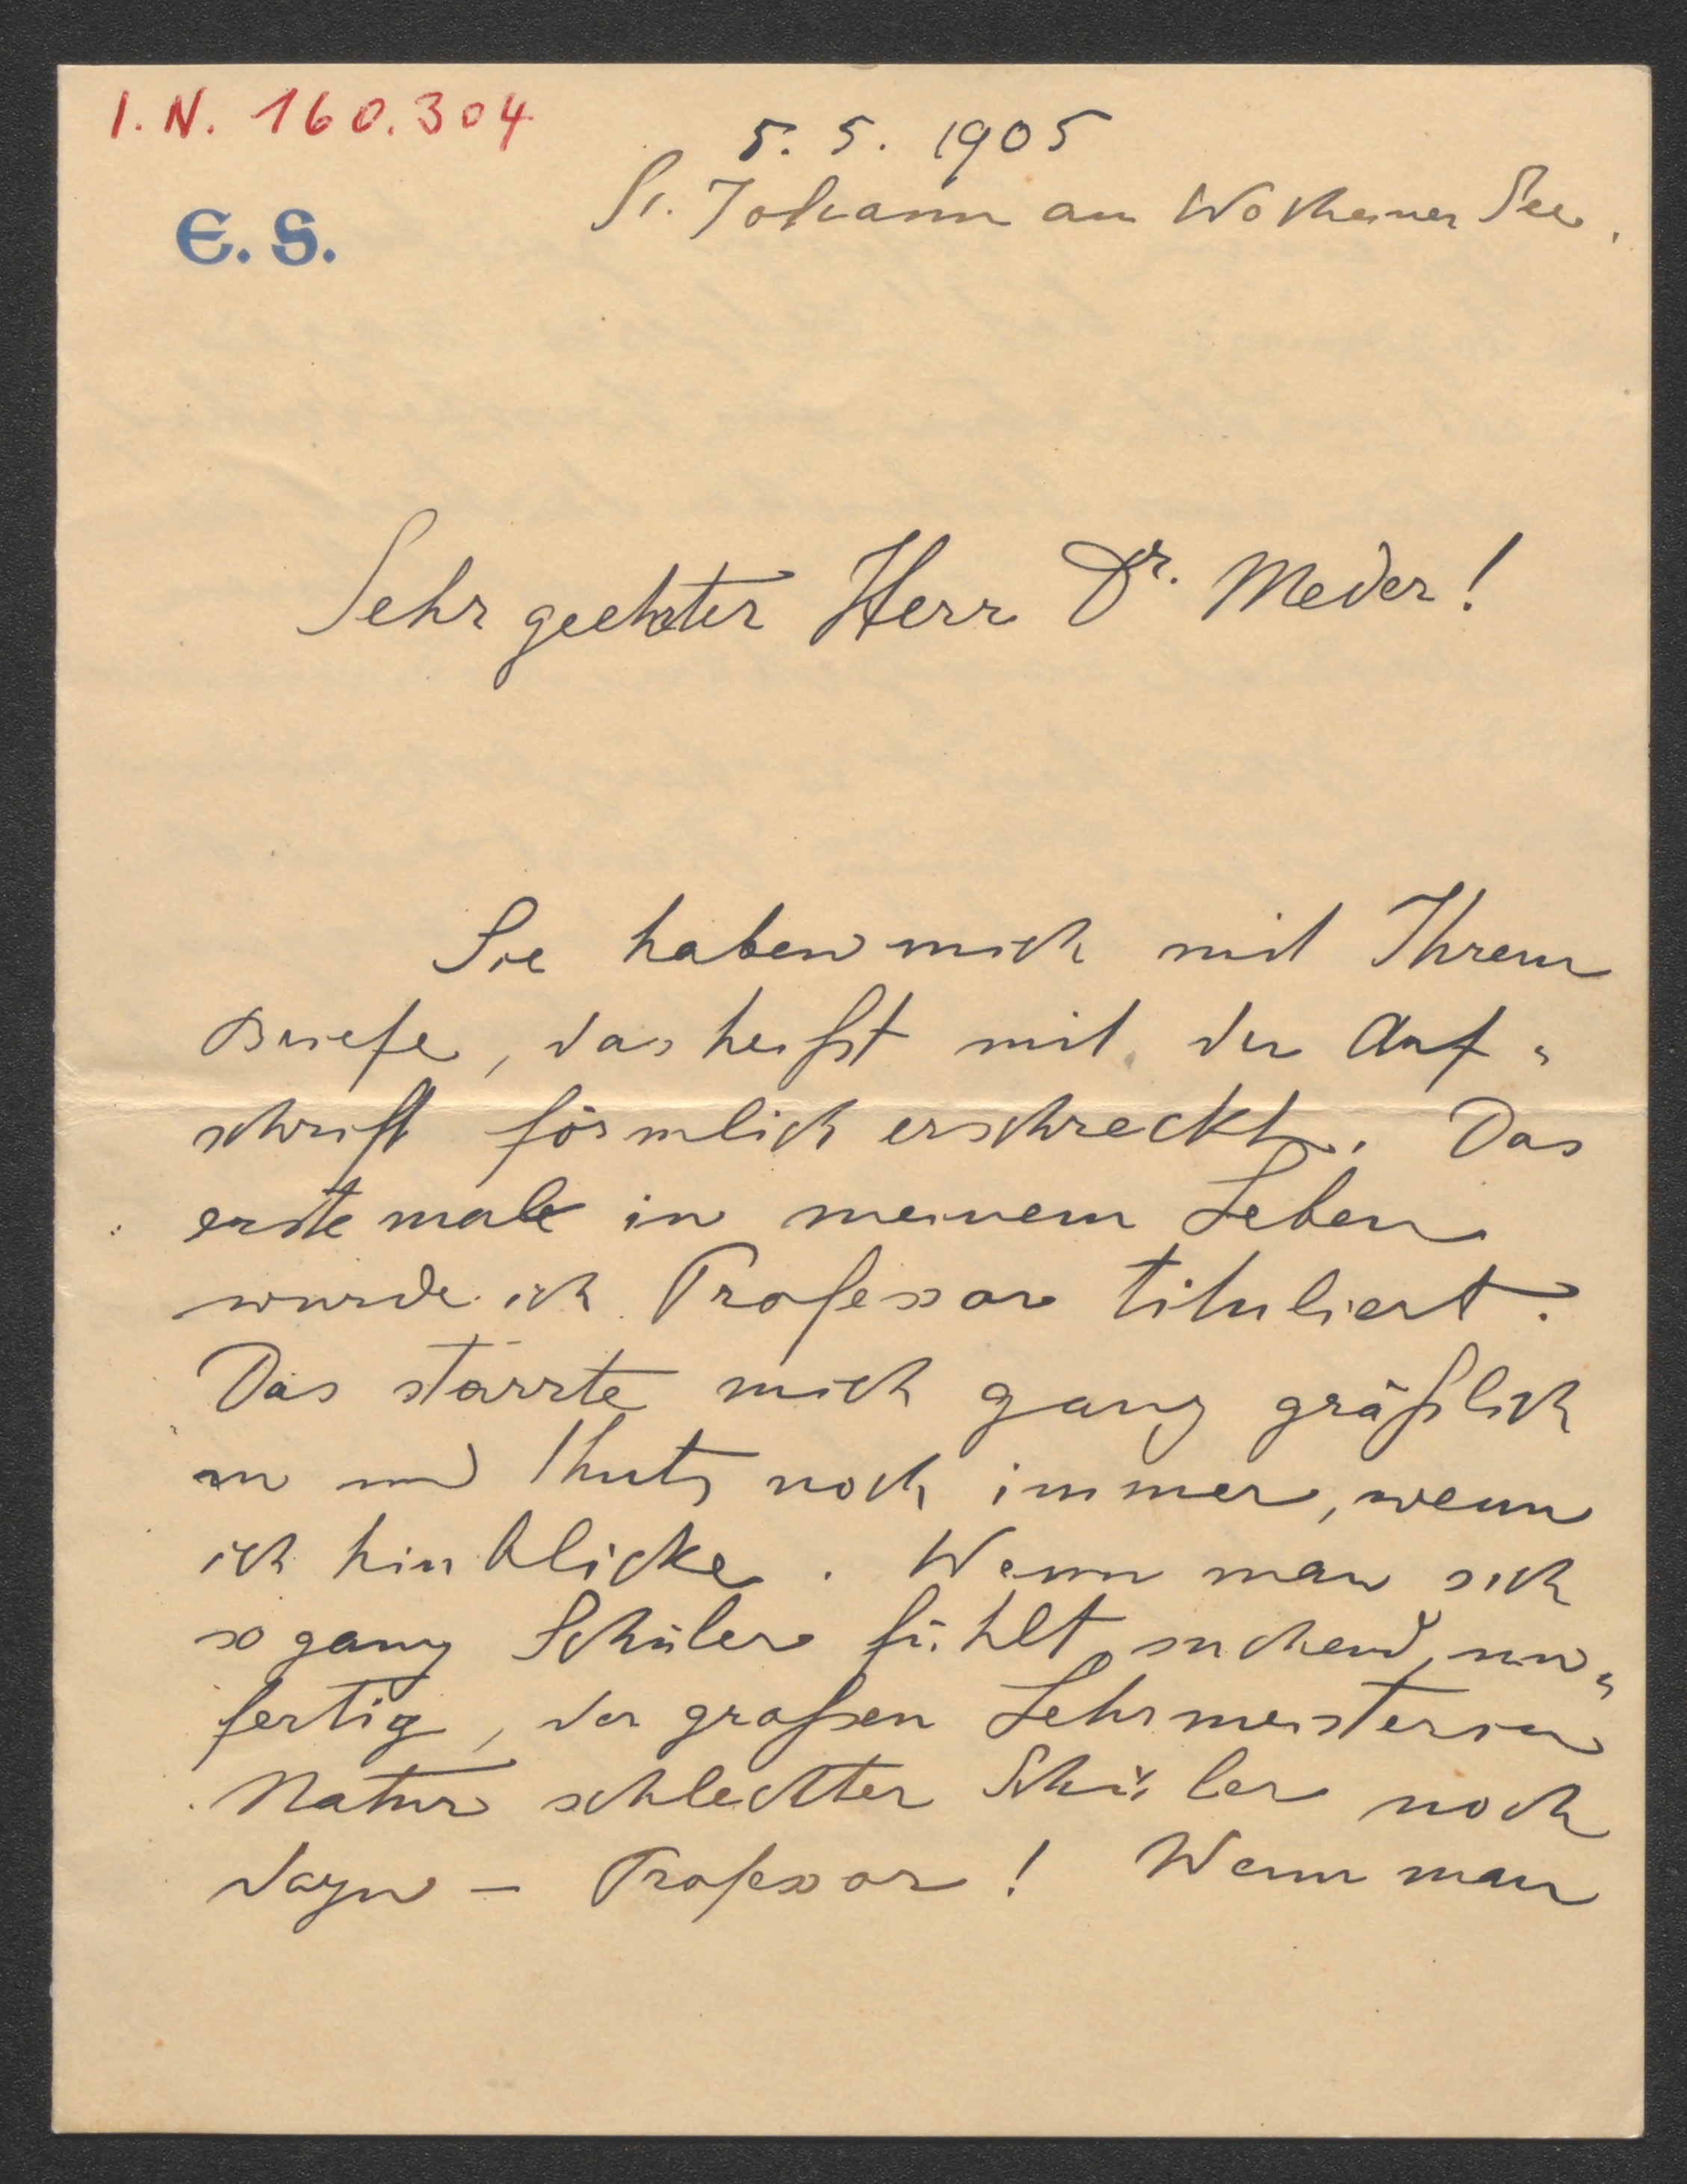 I. N. 160.304
5. 5. 1905
St. Johann am Wocheiner See,
E. S.
Sehr geehrter Herr Dr. Meder!
Sie haben mich mit Ihrem
Briefe, das heißt mit der Auf-
schrift förmlich erschreckt. Das
erste male in meinem Leben
wurde ich Professor tituliert.
Das starrte mich ganz gräßlich
an und thuts noch immer, wenn
ich hinblicke. Wenn man sich
so ganz Schüler fühlt, suchend, un-
fertig, der großen Lehrmeisterin
Natur schlechter Schüler noch
dazu – Professor! Wenn man